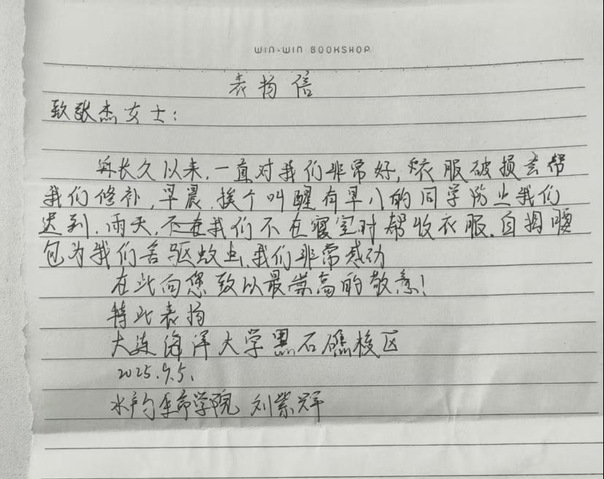 WIN-WIN BOOKSHOP
表扬信
致张杰女士:
每长久以来,一直对我们非常好,衣服破损去帮
我们修补,早晨,挨个叫醒有早八的同学防止我们
迟到,雨天,我们不在寝室时帮收衣服.自掏腰
包为我们买驱蚊虫,我们非常感动
在此向您致以最崇高的敬意!
特此表扬
大连海洋大学黑石礁校区
2025.9.5.
水产与生命学院 刘紫